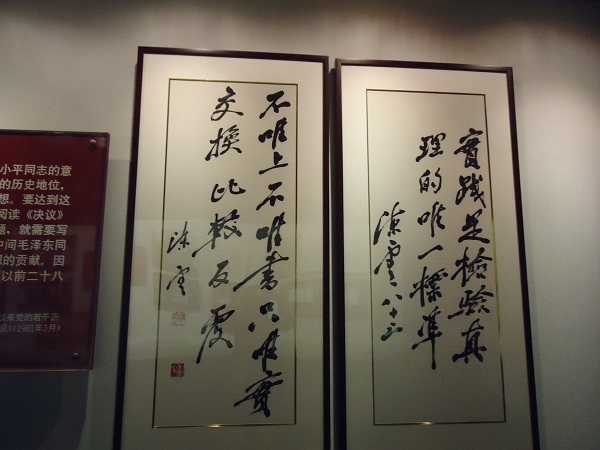 小平同志的意
的历史地位，
想。要达到这
阅读《决议》
题，就需要写
中间毛泽东同
的贡献。因
以前二十八
以来党的若干历
见》(1981年3月)
不唯上不唯書只唯實
交換比較反覆
陳雲
實踐是檢驗真
理的唯一標準
陳雲八十